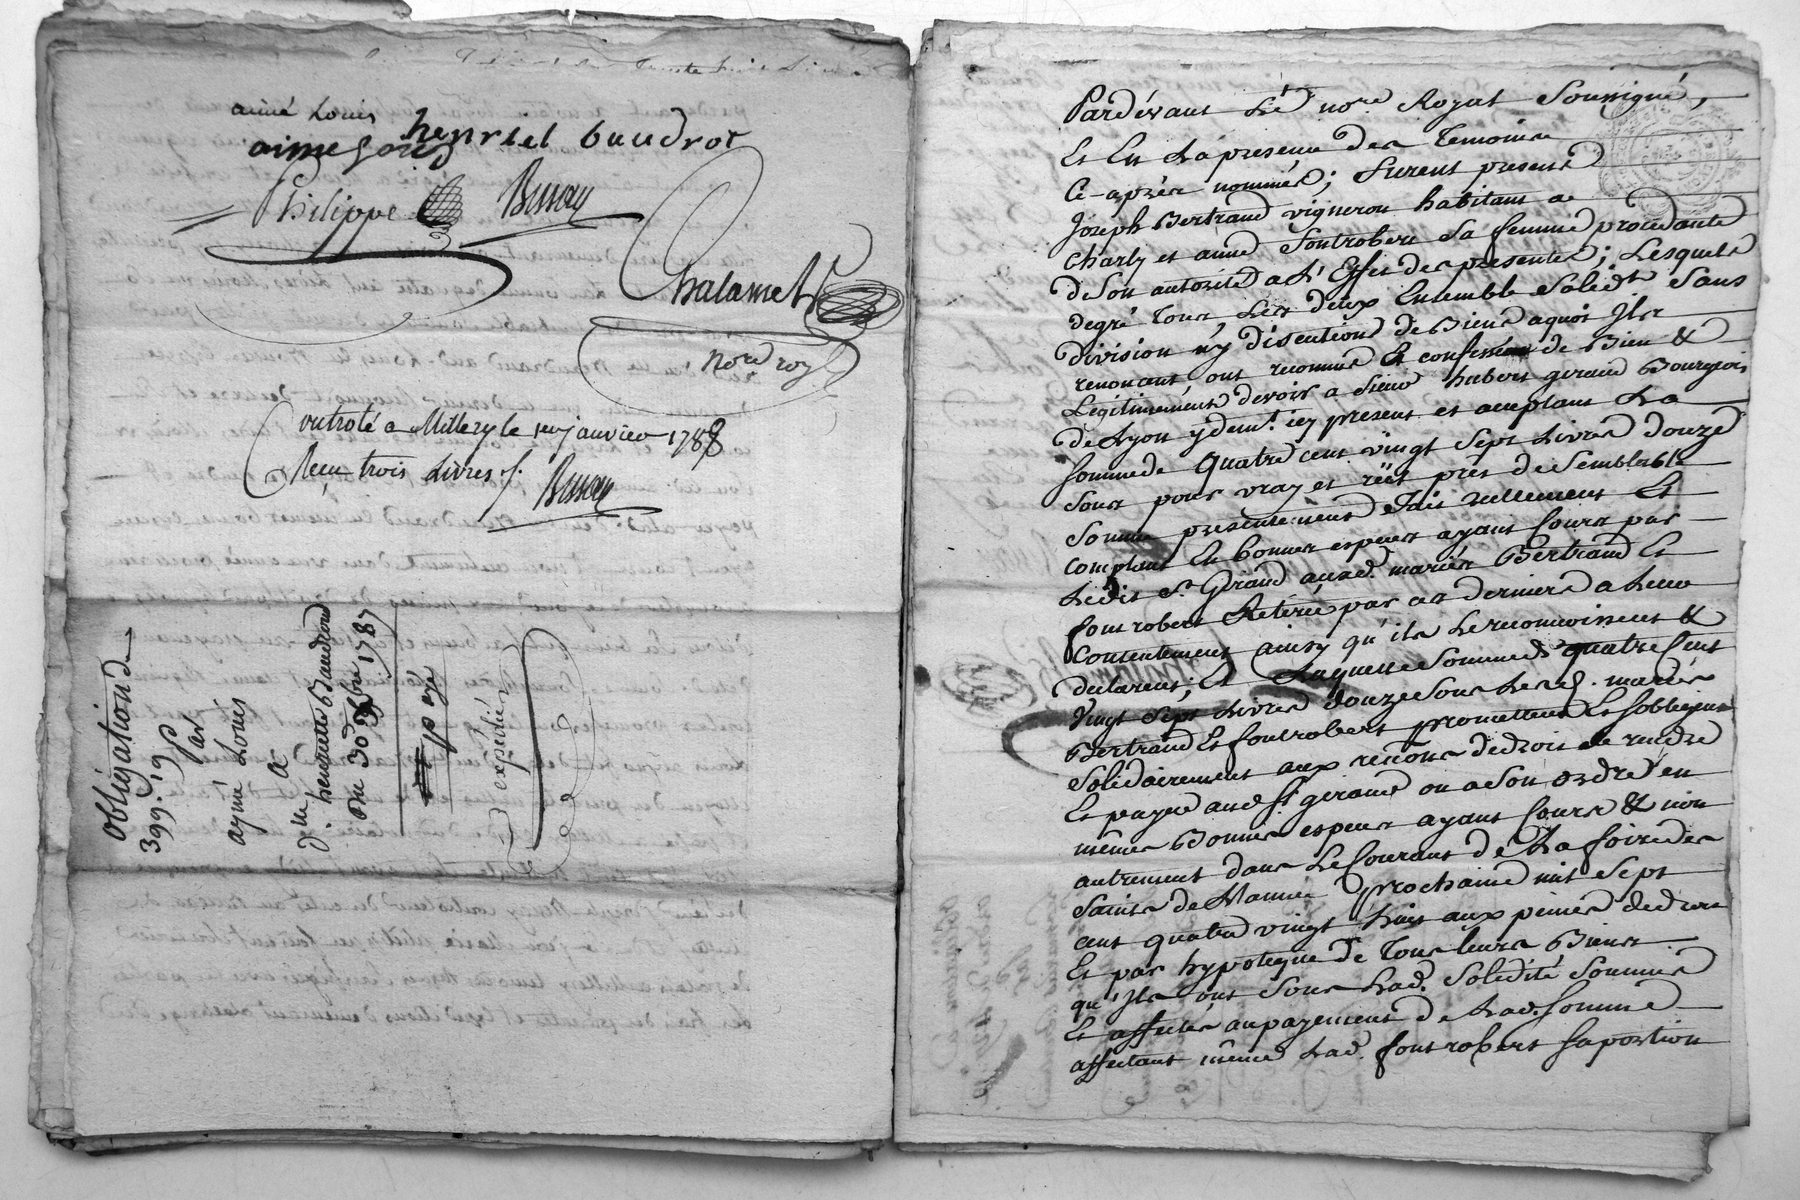 aimé Louis
aime louis henriet baudrot
Philippe Buson
Chalamel
No.re roy.
Controlé a Millery le 1er janvier 1788
Reçu trois Livres
Obligation de
399.# 19s
Par
aymé Louis
a
d.lle henriette Baudrand
Du 30 Xbre 1787
payé
expédiée
Pardévant Le no.re Royal Soussigné,
Et En La presence des Temoins
Ce-après nommés; furent presents
Joseph Bertrand vigneron habitant a
Charly et anne fontrobert Sa femme procedante
de Son autorité a L'Effet des presentes; Lesquels
de gré Tous Les deux Ensemble Solid.t Sans
division ny discution de Biens a quoi Ils
renoncent ont reconnus Et confessé de Bien &
Legitimement devoir a Sieur hubert giraud Bourgeois
de Lyon y dem.t icy present et acceptant La
Somme de quatre cent vingt Sept Livres douze
Sous pour vray et prest de Semblable
Somme presentement fait réellement Et
comptant En bonnes especes ayant Cours par
Ledit S.r Giraud auxd. mariés Bertrand Et
fontrobert Retirée par ces derniers a Leur
Contentement ainsy qu'ils Le reconnoissent &
declarent; Et Laquelle Somme de quatre Cent
Vingt Sept Livres douze Sous Lesd. mariés
Bertrand Et fontrobert promettent Et Sobligent
Solidairement aux renons de droit de rendre
Et payer aud. S.r giraud ou a Son ordre en
mêmes Bonnes especes ayant Cours & non
autrement dans Le Courant de La foire des
Saints de L'année prochaine mil Sept
cent quatre vingt huit aux peines de droit
Et par hypoteque de Tous leurs Biens
qu'Ils ont Sous Lad. Solidité Soumis
Et affectés au payement de Lad. Somme
affectant même Lad. fontrobert Sa portion